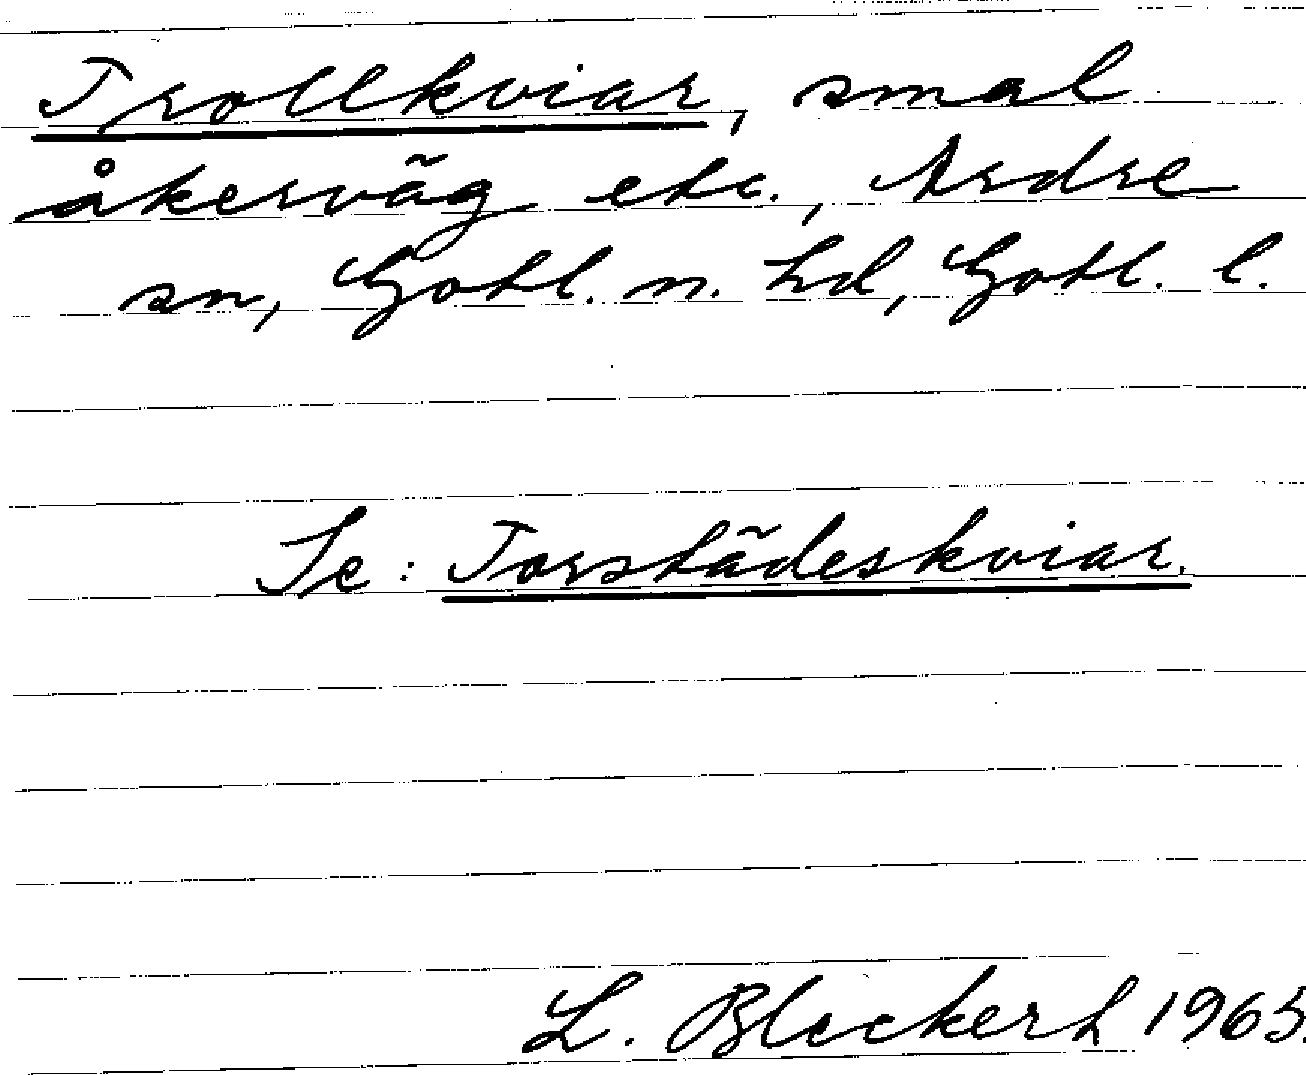 Trollkviar, smal
åkerväg etc., Ardre
sn, Gotl. n. hd, Gotl. l.
Se: Torstädeskviar.
L. Bleckert 1965.